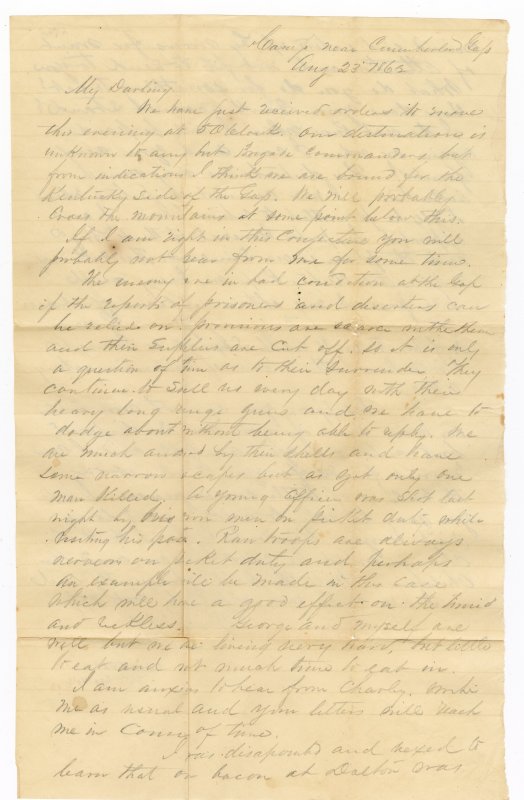 Camp near Cumberland Gap
Aug 23 1862
My Darling
We have just received orders to move
this evening at 5 OClock. Our destination is
unknown to any but Brigade Commanders, but
from indications I think we are bound for the
Kentucky Side of the Gap. We will probably
Cross the mountains at some point below this.
If I am right in this Conjecture you will
probably not hear from me for some time.
The enemy are in bad condition at the Gap
if the reports of prisoners and deserters can
be relied on. provisions are scarce with them
and their Supplies are Cut off. So it is only
a question of time as to their Surrender. They
continue to Shell us every day with their
heavy long range guns and we have to
dodge about without being able to reply. We
are much by their Shells and have
some narrow scapes but as yet only one
man Killed. A young Officer was Shot last
night by his own men on picket duty while
visiting his post. Raw troops are always
nervous on picket duty and perhaps
an example will be made in this case
which will have a good effect on the timid
and reckless. George and myself are
well but we are living very hard, but little
to eat and not much time to eat in.
I am anxious to hear from Charley. Write
me as usual and your letters will reach
me in of time.
I was disapointed and vexed to
learn that our bacon at Dalton was